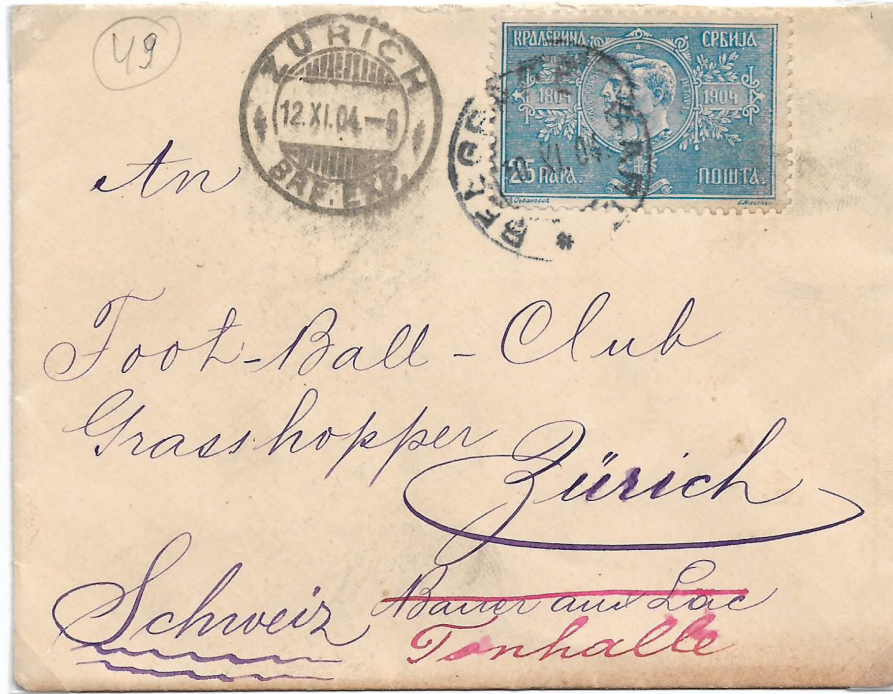 49
ZÜRICH
12.XI.04.-9
BRF. EXP.
КРАЉЕВИНА СРБИЈА
1804 1904
25 ПАРА. ПОШТА.
XI. 04
An
Foot-Ball-Club
Grasshopper
Zürich
Schweiz
Baur au Lac
Tonhalle